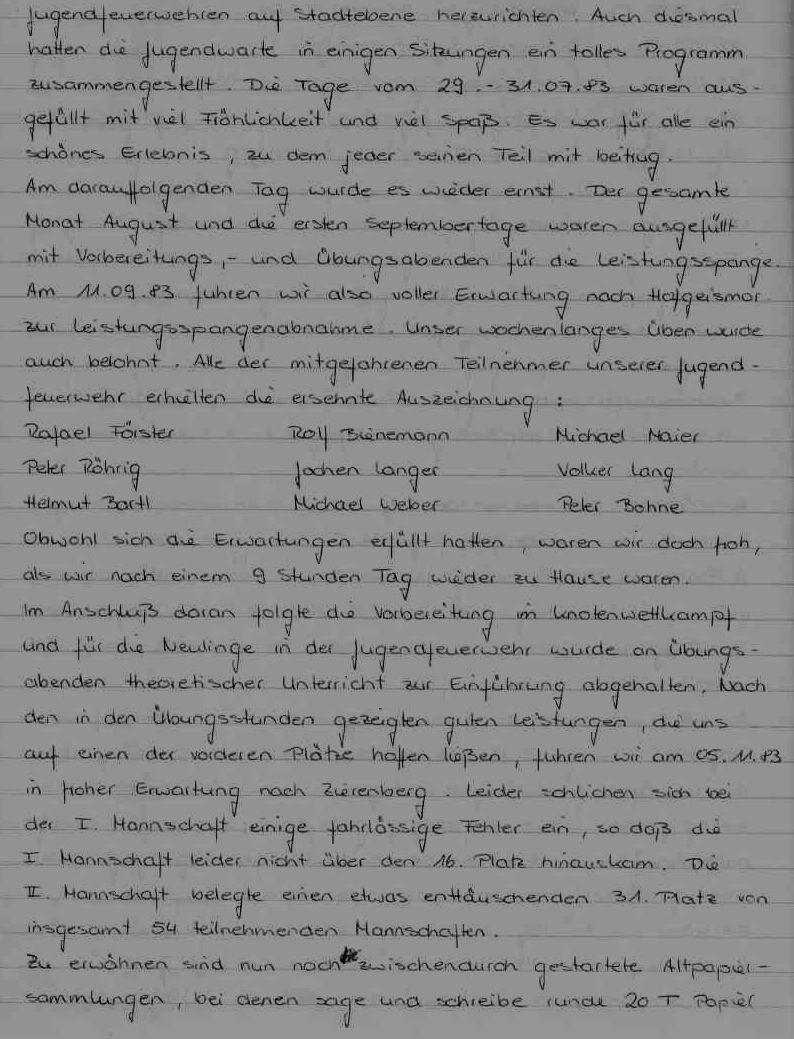 Jugendfeuerwehren auf Stadtebene herzurichten. Auch diesmal
hatten die Jugendwarte in einigen Sitzungen ein tolles Programm
zusammengestellt. Die Tage vom 29.-31.07.83 waren aus-
gefüllt mit viel Fröhlichkeit und viel Spaß. Es war für alle ein
schönes Erlebnis, zu dem jeder seinen Teil mit beitrug.
Am darauffolgenden Tag wurde es wieder ernst. Der gesamte
Monat August und die ersten Septembertage waren ausgefüllt
mit Vorbereitungs,- und Übungsabenden für die Leistungsspange.
Am 11.09.83 fuhren wir also voller Erwartung nach Hofgeismar
zur Leistungsspangenabnahme. Unser wochenlanges Üben wurde
auch belohnt. Alle der mitgefahrenen Teilnehmer unserer Jugend-
feuerwehr erhielten die ersehnte Auszeichnung :
Rafael Förster Rolf Bienemann Michael Maier
Peter Röhrig Jochen Langer Volker Lang
Helmut Bartl Michael Weber Peter Bohne
Obwohl sich die Erwartungen erfüllt hatten, waren wir doch froh,
als wir nach einem 9 Stunden Tag wieder zu Hause waren.
Im Anschluß daran folgte die Vorbereitung im Knotenwettkampf
und für die Neulinge in der Jugendfeuerwehr wurde an Übungs-
abenden theoretischer Unterricht zur Einführung abgehalten. Nach
den in den Übungsstunden gezeigten guten Leistungen, die uns
auf einen der vorderen Plätze hoffen ließen, fuhren wir am 05.11.83
in froher Erwartung nach Zierenberg. Leider schlichen sich bei
der I. Mannschaft einige fahrlässige Fehler ein, so daß die
I. Mannschaft leider nicht über den 16. Platz hinauskam. Die
II. Mannschaft belegte einen etwas enttäuschenden 31. Platz von
insgesamt 54 teilnehmenden Mannschaften.
Zu erwähnen sind nun noch zwischendurch gestartete Altpapier-
sammlungen, bei denen sage und schreibe runde 20 T Papier